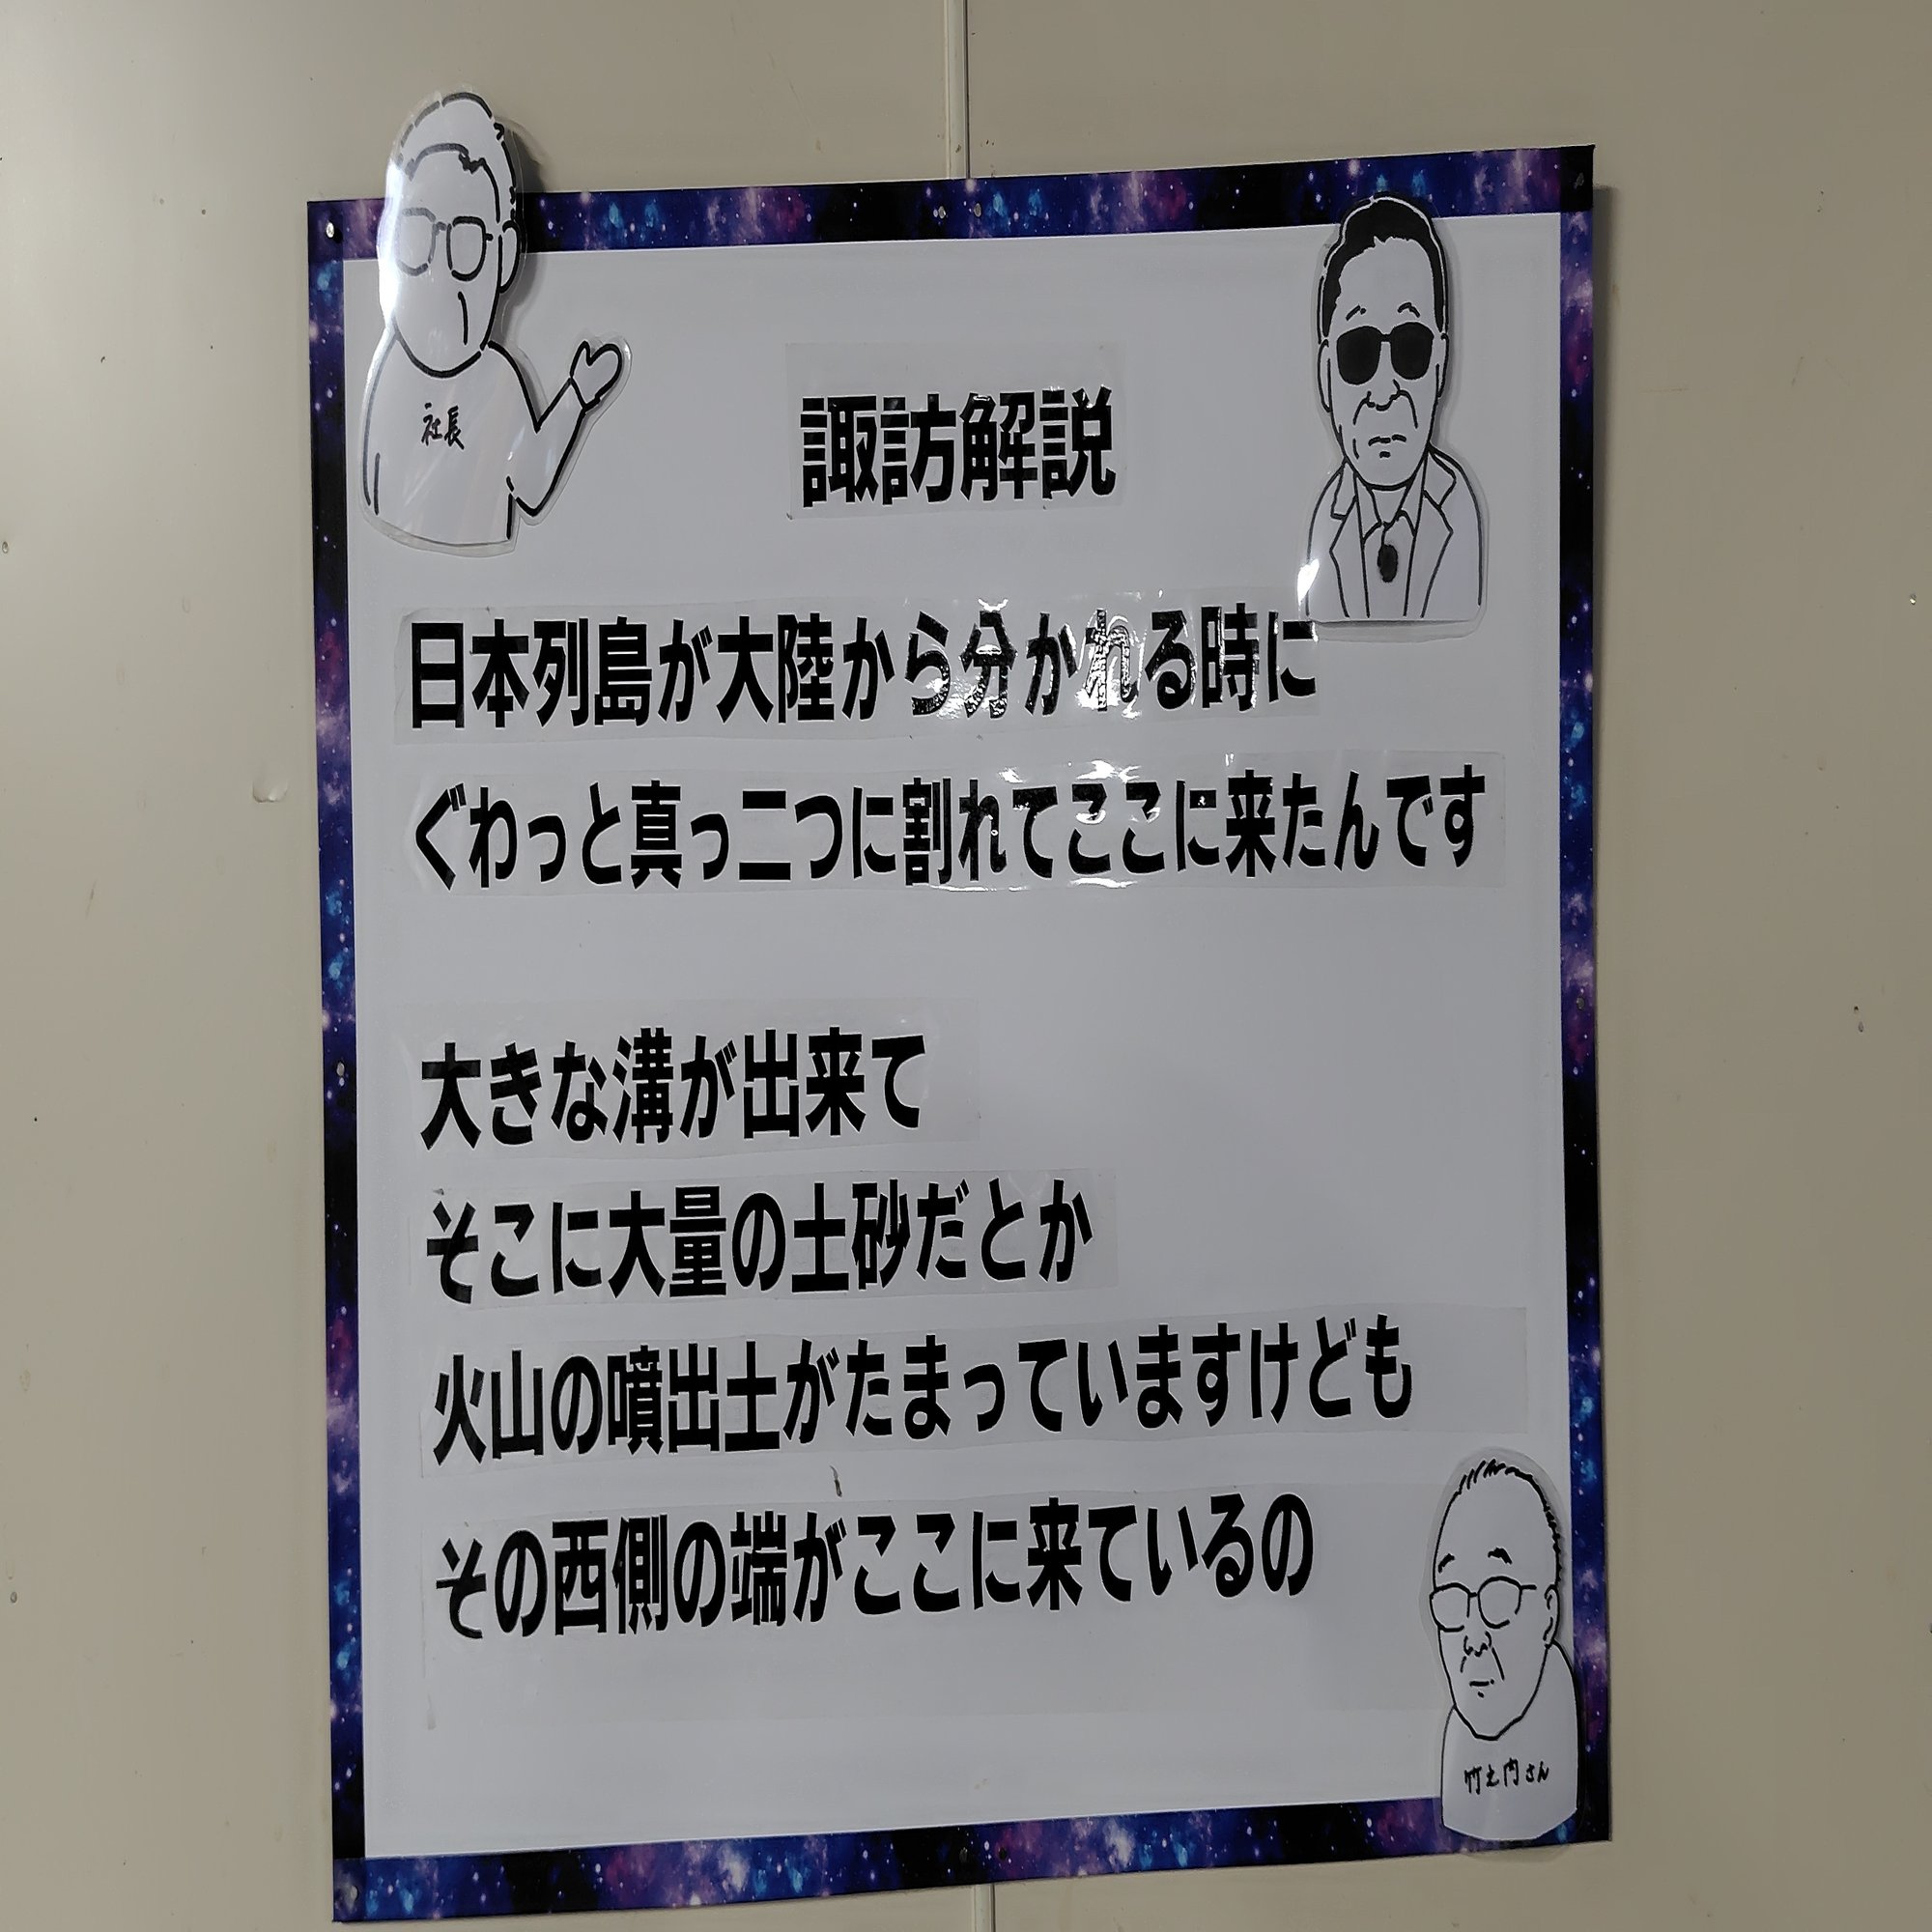 社長
諏訪解説
日本列島が大陸から分かれる時に
ぐわっと真っ二つに割れてここに来たんです
大きな溝が出来て
そこに大量の土砂だとか
火山の噴出土がたまっていますけども
その西側の端がここに来ているの
竹之内さん